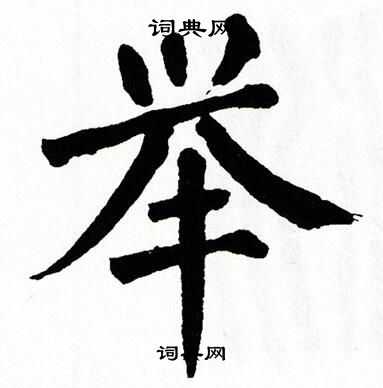 词典网
举
词典网